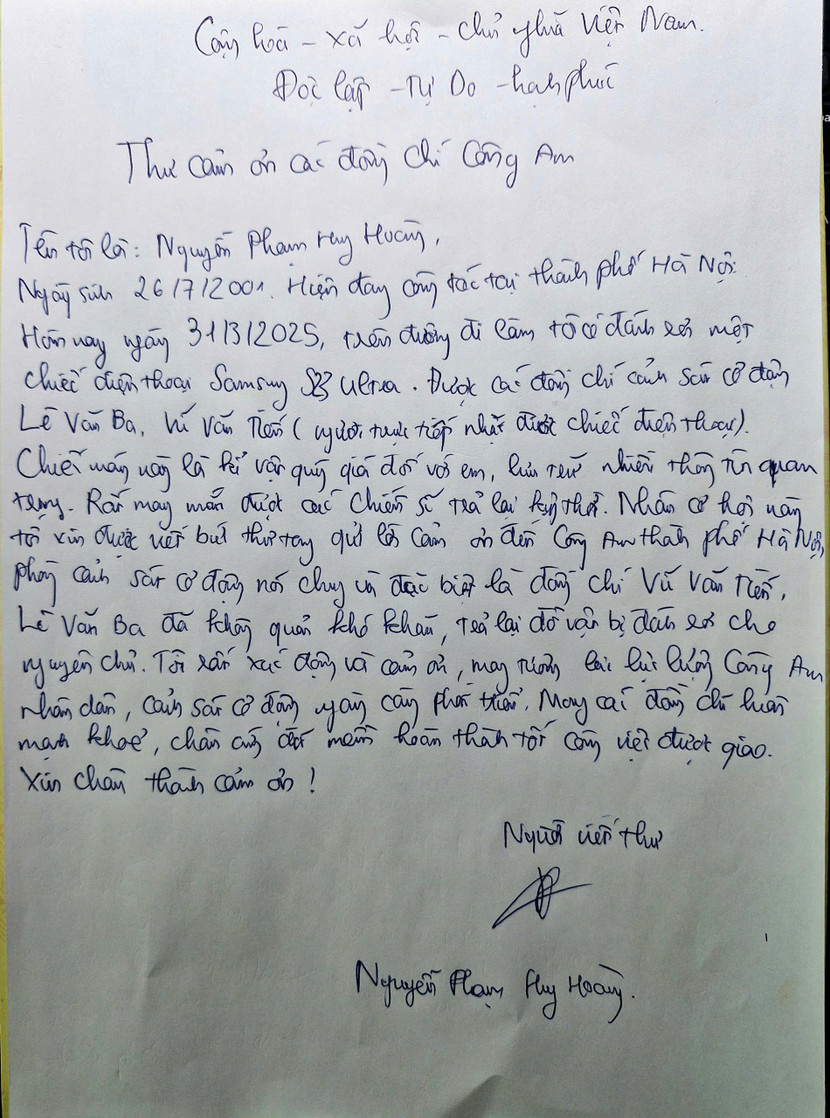 Cộng hoà - xã hội - chủ nghĩa Việt Nam.
Độc lập - Tự Do - hạnh phúc
Thư cảm ơn các đồng chí Công An
Tên tôi là: Nguyễn Phạm Huy Hoàng,
Ngày sinh 26/7/2001. Hiện đang công tác tại thành phố Hà Nội.
Hôm nay ngày 31/3/2025, trên đường đi làm tôi có đánh rơi một
chiếc điện thoại Samsung S23 Ultra. Được các đồng chí cảnh sát cơ động
Lê Văn Ba, Vũ Văn Tiến (người trực tiếp nhặt được chiếc điện thoại).
Chiếc máy này là kỉ vật quý giá đối với em, lưu trữ nhiều thông tin quan
trọng. Rất may mắn được các chiến sĩ trả lại kịp thời. Nhân cơ hội này
tôi xin được viết bút thư tay gửi lời cảm ơn đến Công An thành phố Hà Nội,
phòng cảnh sát cơ động nói chung và đặc biệt là đồng chí Vũ Văn Tiến,
Lê Văn Ba đã không quản khó khăn, trả lại đồ vật bị đánh rơi cho
nguyên chủ. Tôi rất xúc động và cảm ơn, mong lực lượng Công An
nhân dân, cảnh sát cơ động ngày càng phát triển. Mong các đồng chí luôn
mạnh khoẻ, chân cứng đá mềm hoàn thành tốt công việc được giao.
Xin chân thành cảm ơn!
Người viết thư
Nguyễn Phạm Huy Hoàng.